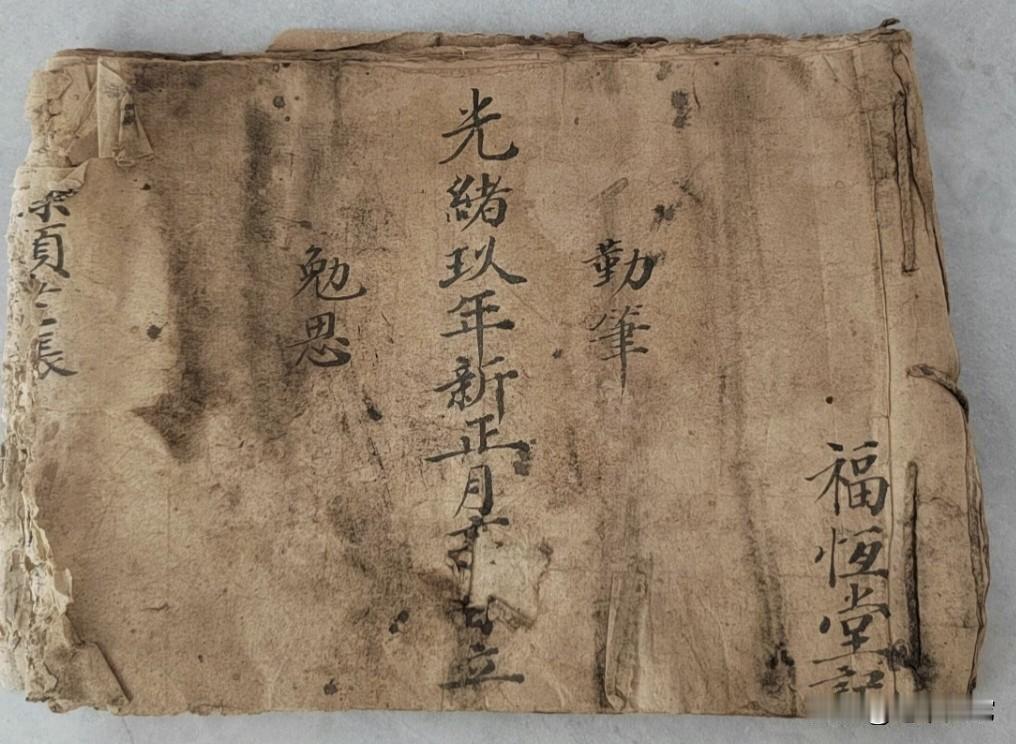 福恆堂記
勤筆
光緒玖年新正月吉立
勉思
頁
長